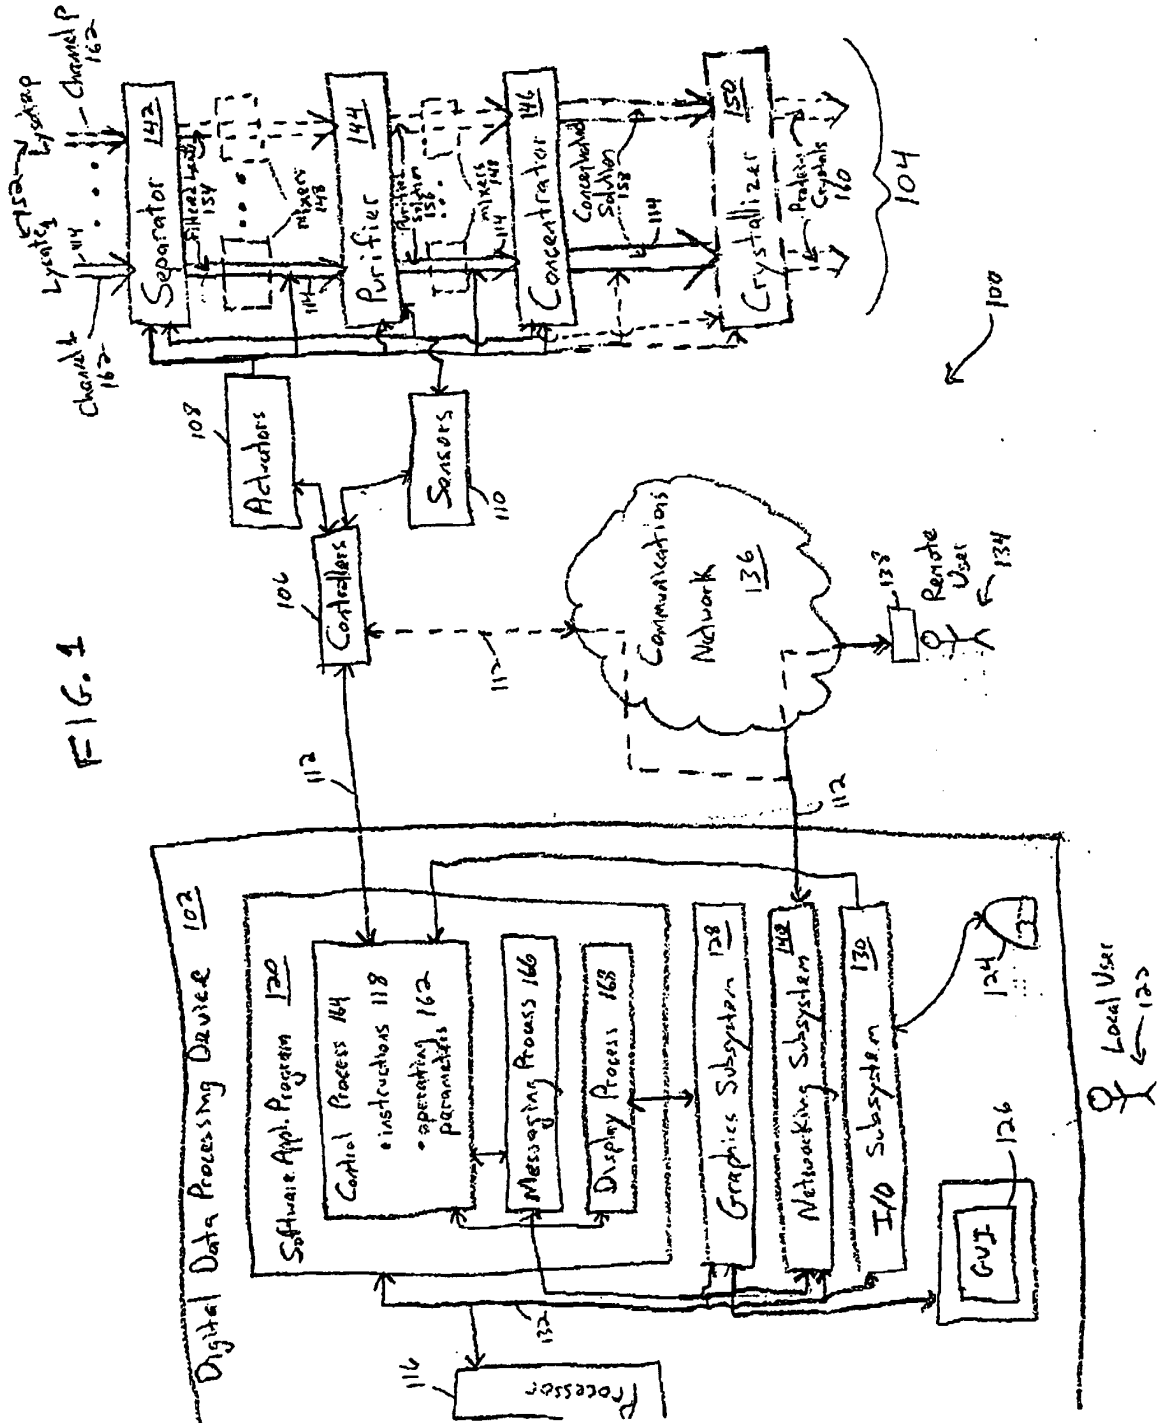 FIG. 1
Digital Data Processing Device 102
Software Appl. Program 120
Control Process 164
• instructions 118
• operating 162
parameters
Messaging Process 166
Display Process 168
Graphics Subsystem 128
Networking Subsystem 140
I/O Subsystem 130
Processor
116
132
GUI
126
124
Local User
122
112
112
112
Controllers
106
Actuators
108
Sensors
110
Communications
Network
136
138
Remote
User
134
100
Lysate 1
114
Channel 1
162
152
Lysate p
Channel P
162
Separator 142
Filtered Lysate
154
mixers
148
114
Purifier 144
Purified
Solution
156
mixers
148
114
Concentrator 146
Concentrated
Solution
158
114
Crystallizer 150
Protein
Crystals
160
104